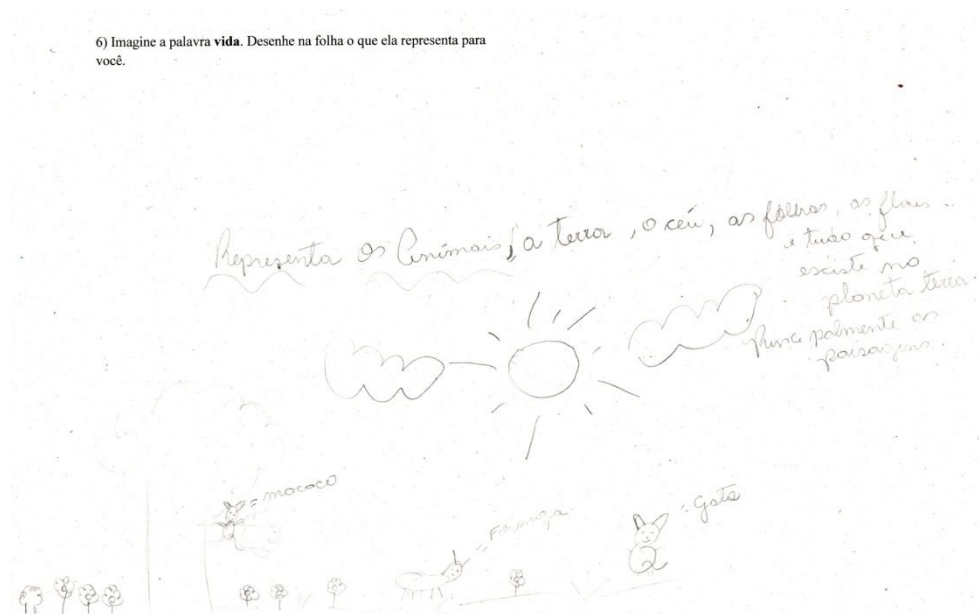 6) Imagine a palavra vida. Desenhe na folha o que ela representa para
você.
Representa os Animais, a terra, o céu, as folhas, as flores...
e tudo que
existe no
planeta terra.
Principalmente as
paisagens.
= mococo
= Formiga
= gato